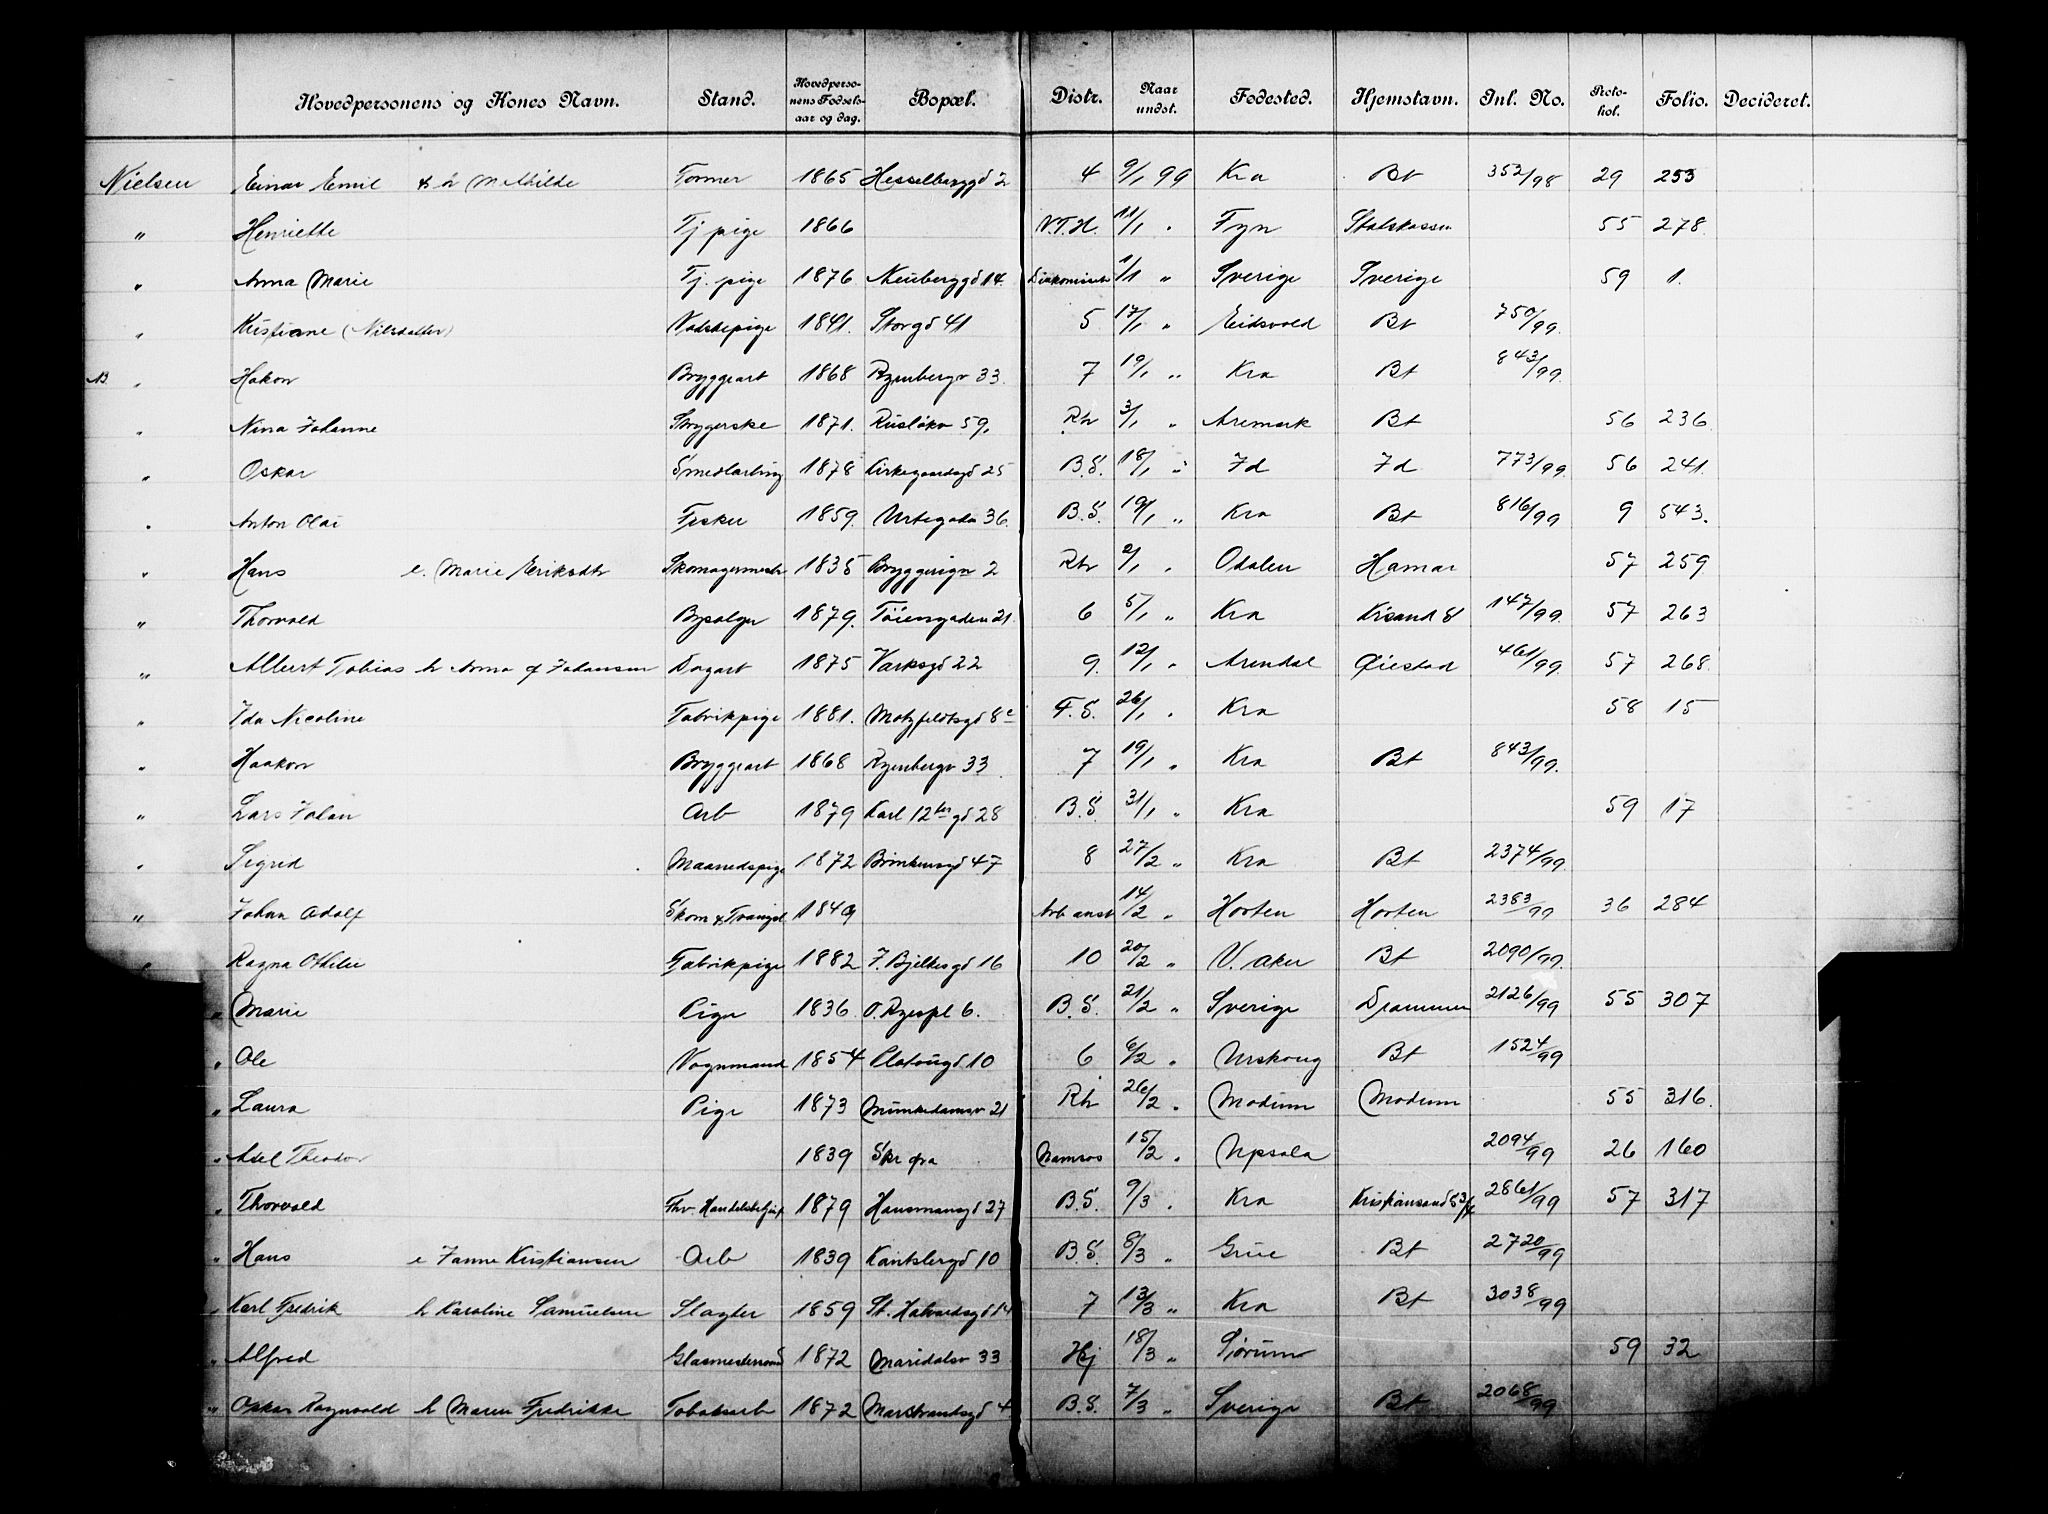 Hovedpersonens og Kones Navn. Stand. Hovedperso-nens Fødsels-aar og dag. Bopæl. Distr. Naar undst. Fødested. Hjemstavn. Inl. No. Proto-kol. Folio. Decideret.
Nielsen Einar Emil & h Mathilde Former 1865 Hesselberggd 2 4 9/1 99 Kra Bt 352/98 29 253
" Henriette Tj pige 1866 V.T.H. 11/1 " Fyn Statskassen 55 278
" Anna Marie Tj. pige 1876 Neuberggd 14 1/1 " Sverige Sverige 59 1.
" Kristiane (Nilsdatter) Vaskepige 1841. Storgd 41 5 17/1 " Eidsvold Bt 750/99.
" Hakon Bryggeart 1868 Ryenbergv 33. 7 19/1 " Kra Bt 843/99.
" Nina Johanne Strygerske 1871. Ruseløkv 59, Rh 3/1 " Aremark Bt 56 236
" Oskar Smedlærling 1878 Kirkegaardsgd 25 B.S. 18/1 " Id Id 773/99. 56 241.
" Anton Olai Fisker 1859. Urtegada 36. B.S. 19/1 " Kra Bt 816/99 9 543.
" Hans e. Marie Eriksdtr Skomagermestr 1835 Bryggerign 2 Rh 2/1 " Odalen Hamar 57 259
" Thorvald Byselger 1879. Tøiengaden 21. 6 5/1 " Kra Krsand S 147/99. 57 263
" Albert Tobias h Anna f Johansen Dagart 1875 Verksgd 22 9. 12/1 " Arendal Øiestad 461/99. 57 268.
" Ida Nicoline Fabrikpige 1881. Motzfeldtsgd 8c F.S. 26/1 " Kra 58 15
" Haakon Bryggeart 1868 Ryenbergv 33 7 19/1 " Kra Bt 843/99.
" Lars Johan Arb 1879 Karl 12tes gd 28 B.S. 31/1 " Kra 59 17
" Sigrid Maanedspige 1872 Brinkensgd 47 8 27/2 " Kra Bt 2374/99.
" Johan Adolf 1849 Arb anst 14/2 " Horten Horten 2383/99 36 284
" Ragna Othilie Fabrikpige 1882 J. Bjelkesgd 16 10 20/2 " V. Aker Bt 2090/99.
" Marie Pige 1836. O. Ryespl 6. B.S. 21/2 " Sverige Drammen 2126/99 55 307
" Ole Vognmand 1854 Platougd 10 6 6/2 " Urskoug Bt 1524/99
" Laura Pige 1873 Munkedamsv 21 Rh 26/2 " Modum Modum 55 316.
" Axel Theodor 1839 Namsos 15/2 " Upsala 2094/99 26 160
" Thorvald Fhv. Handelsbetjent 1879 Hausmansgd 27 B.S. 9/3 " Kra Kristiansand S 2861/99 57 317
" Hans e Janne Kristiansen Arb 1839 Kantslergd 10 B.S. 8/3 " Grue Bt 2720/99
" Karl Fredrik h Karoline Samuelsen Slagter 1859 St. Halvardsgd 14 7 13/3 " Kra Bt 3038/99
" Alfred Glasmestersvend 1872 Maridalsv 33 Hj 18/3 " Sørum 59 32
" Oskar Ragnvald h Maren Fredrikke Tobaksarb 1872 Marstrantsgd 4 B.S. 7/3 " Sverige Bt 2068/99